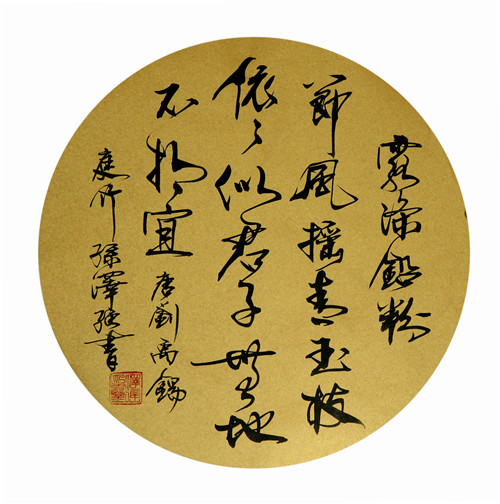 露滌鉛粉
節風搖青玉枝
依々似君子無地
不相宜 唐劉禹錫
庭竹 孫澤書